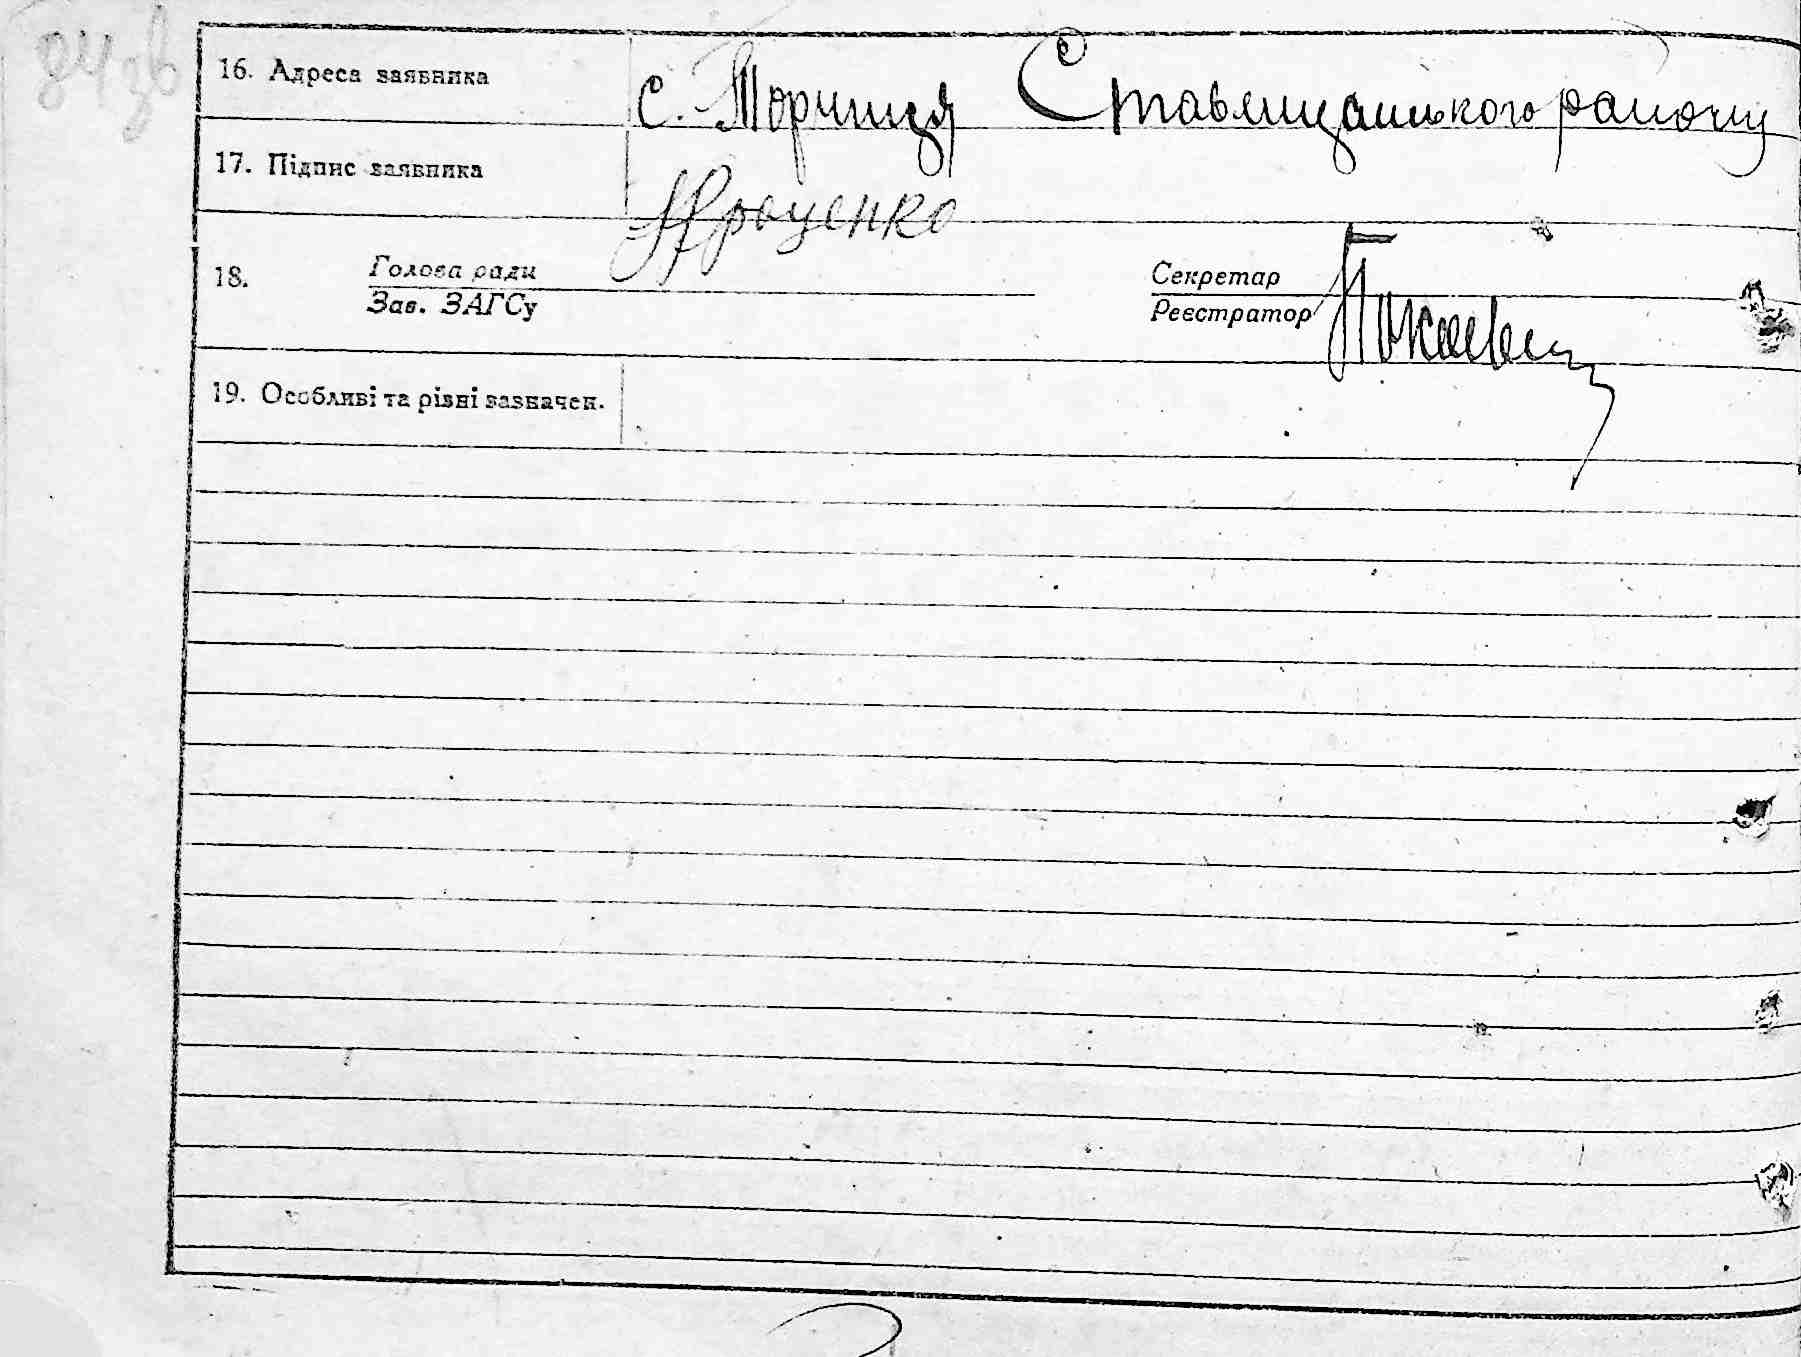 84зв
16. Адреса заявника с. Торчиця Ставищанського району
17. Підпис заявника Проценко
18. Голова ради Секретар
Зав. ЗАГСу Реєстратор
19. Особливі та різні зазначен.